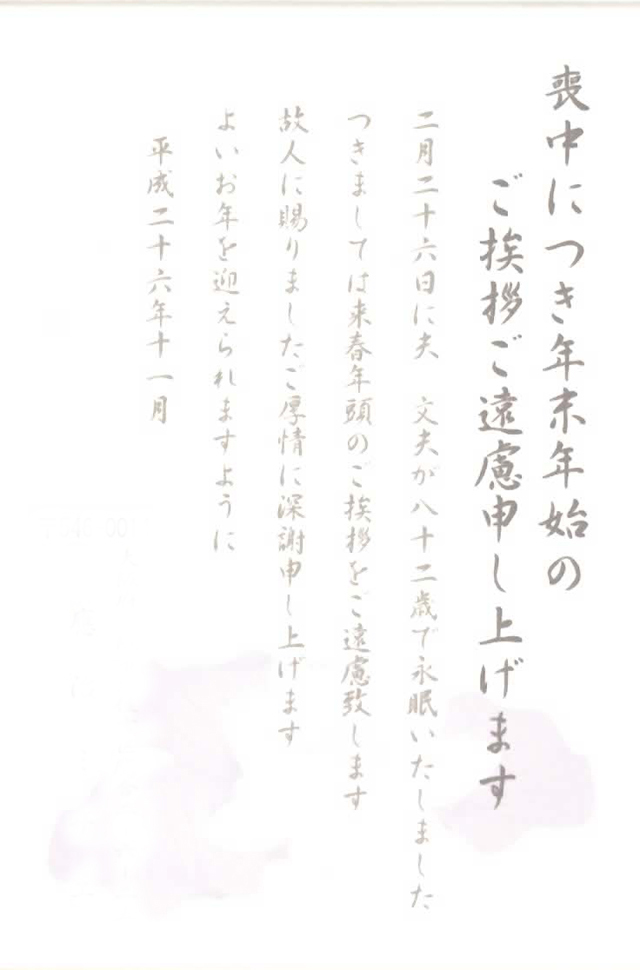 喪中につき年末年始の
ご挨拶ご遠慮申し上げます
二月二十六日に夫　文夫が八十二歳で永眠いたしました
つきましては来春年頭のご挨拶をご遠慮致します
故人に賜りましたご厚情に深謝申し上げます
よいお年を迎えられますように
平成二十六年十一月